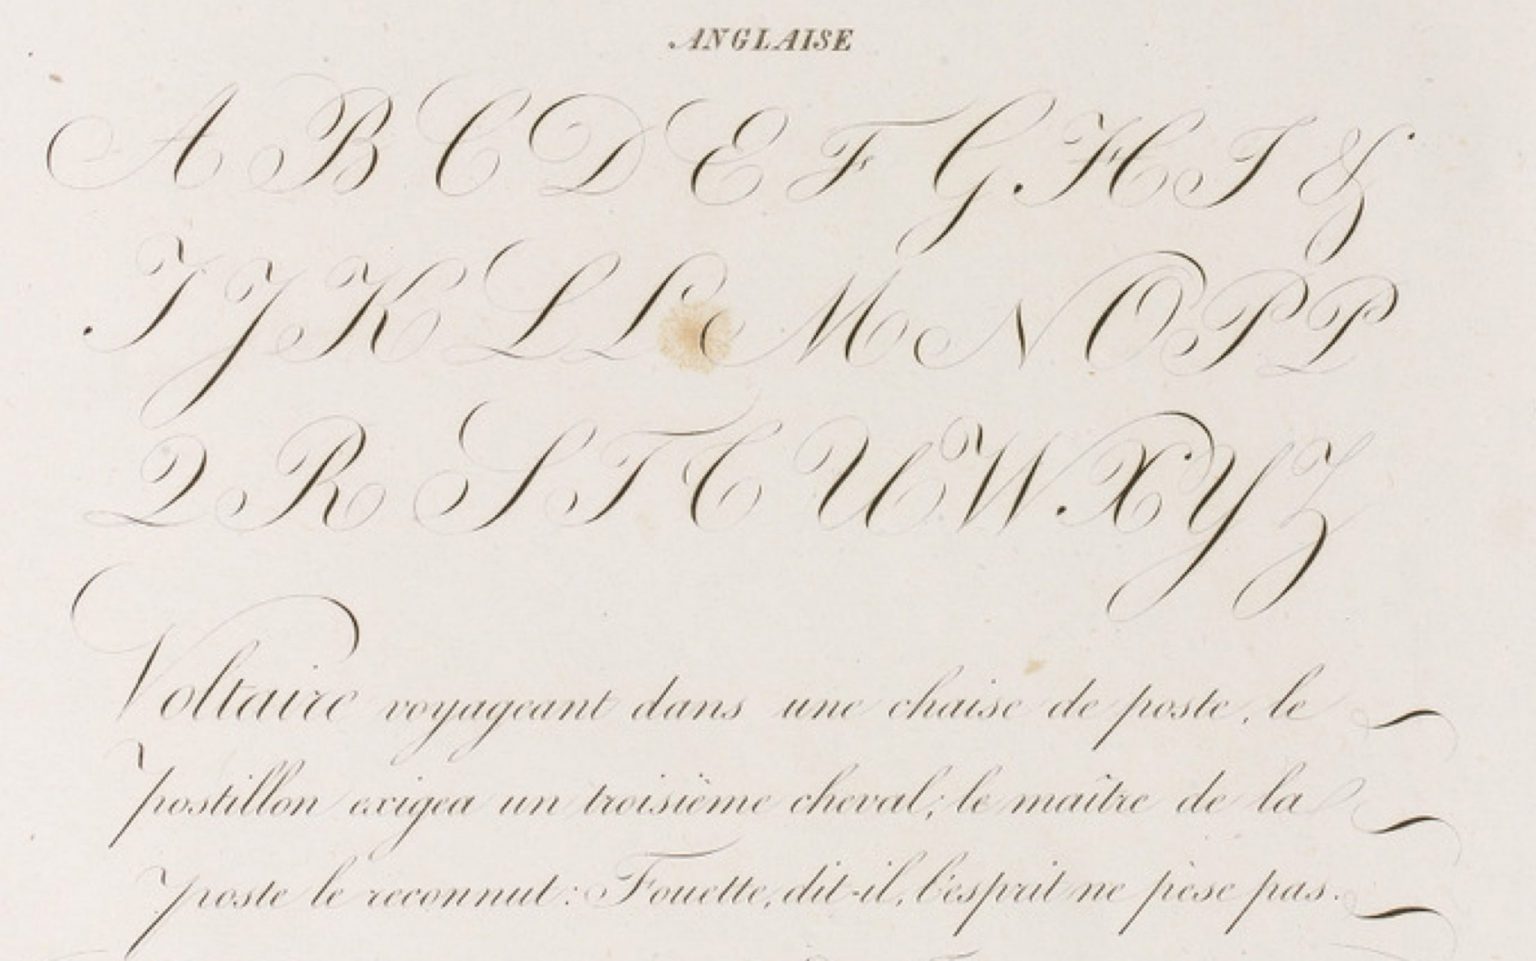 ANGLAISE
A B C D E F G H I &
I J K L L M N O P P
Q R S T T U W X Y Z
Voltaire voyageant dans une chaise de poste, le
postillon exigea un troisième cheval; le maître de la
poste le reconnut: Fouette, dit-il, l'esprit ne pèse pas.